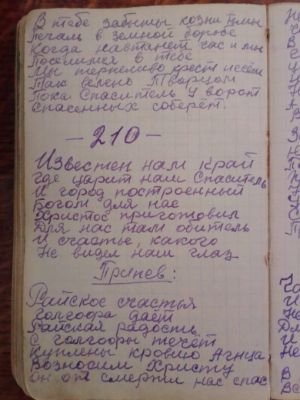 В тебе забыты козни тьмы
Печаль в земной борьбе
Когда настанет час и мы
Поселимся в тебе
Мы терпеливо крест несём
Так велено Творцом
Пока Спаситель у ворот
Спасенных соберёт.
- 210 -
Известен нам край
где царит наш Спаситель
И город построенный
Богом для нас
Христос приготовил
Для нас там обитель
И счастье, какого
Не видел наш глаз
Припев:
Райское счастья
голгофа даёт
Райская радость
с голгофы течёт
Куплены кровию Агнца
Возносим Христу
Он от смерти нас спас